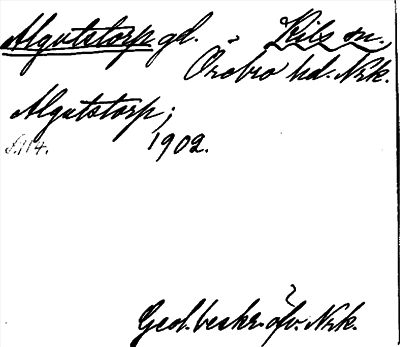 Algutstorp gd. i Kils sn.,
Örebro hd. Nrk.
Algutstorp;
s. 114. 1902.
Ged. beskr. öfv. Nrk.